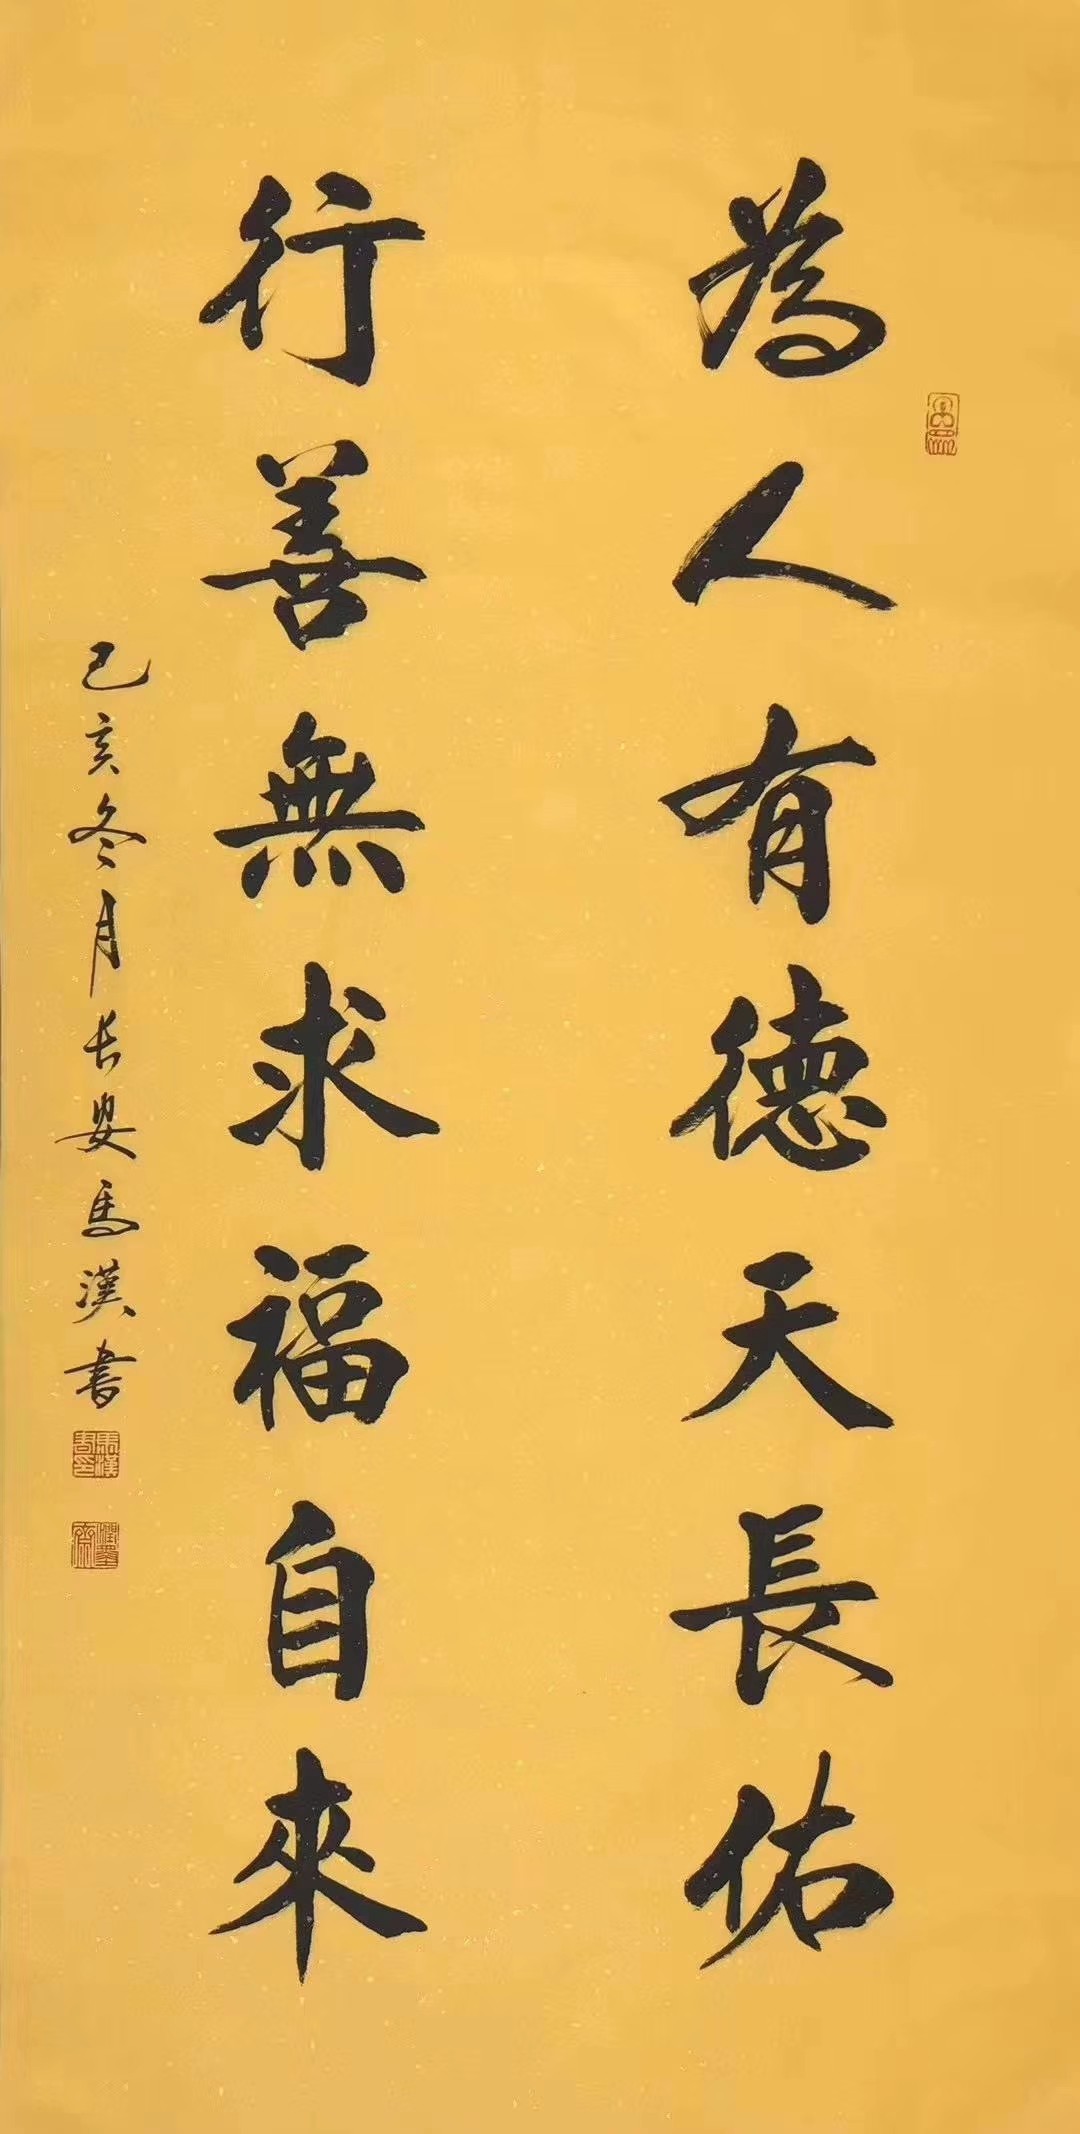 為人有德天長佑
行善無求福自來
己亥冬月長安馬漢書